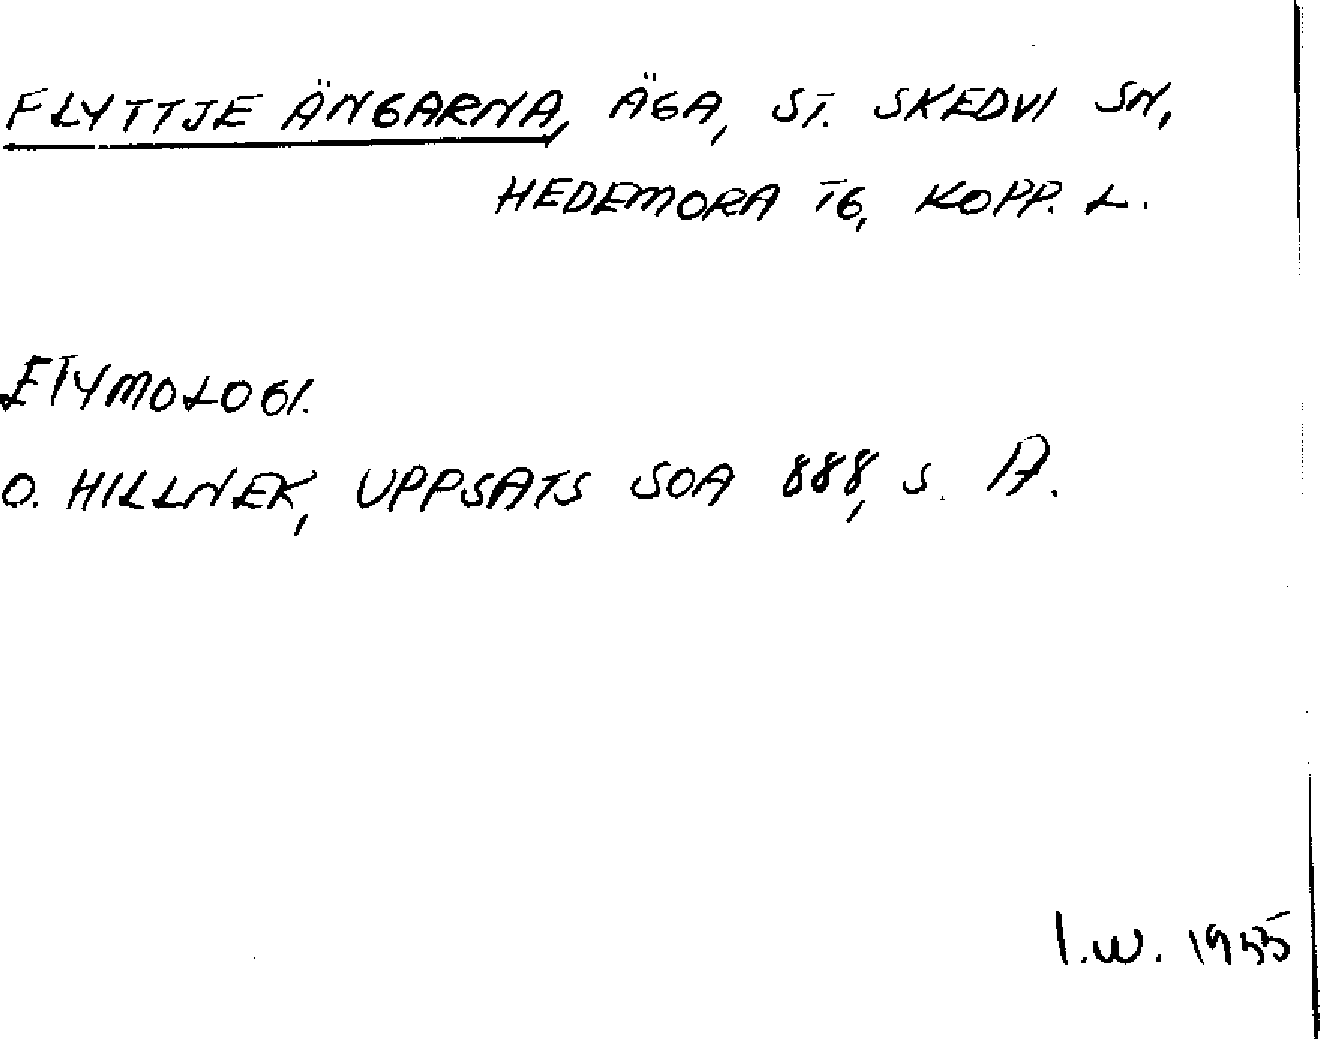 FLYTTJE ÄNGARNA, ÄGA, ST. SKEDVI SN,
HEDEMORA TG, KOPP. L.
ETYMOLOGI.
O. HILLNEK, UPPSATS SOA 888, S. 17.
I.W. 1955